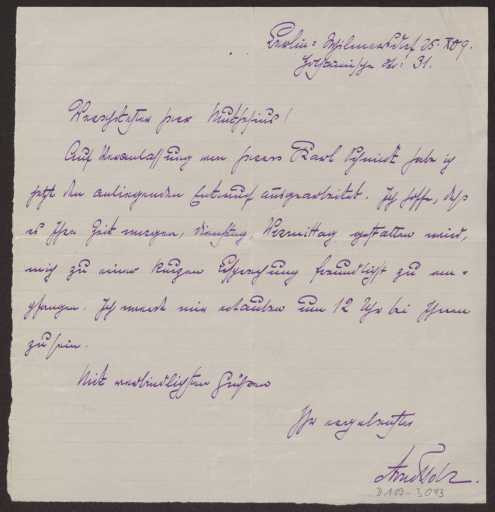 Berlin-Wilmersdorf 25. X 09.
Holsteinische Str: 31.
Verehrtester Herr Muthesius!
Auf Veranlassung von Herrn Karl Schmidt habe ich
jetzt den anliegenden Entwurf ausgearbeitet. Ich hoffe, daß
es Ihre Zeit morgen, Dienstag, Vormittag gestatten wird,
mich zu einer kurzen Besprechung freundlichst zu em-
pfangen. Ich werde mir erlauben um 12 Uhr bei Ihnen
zu sein.
Mit verbindlichsten Grüßen
Ihr ergebenster
D 102-3093